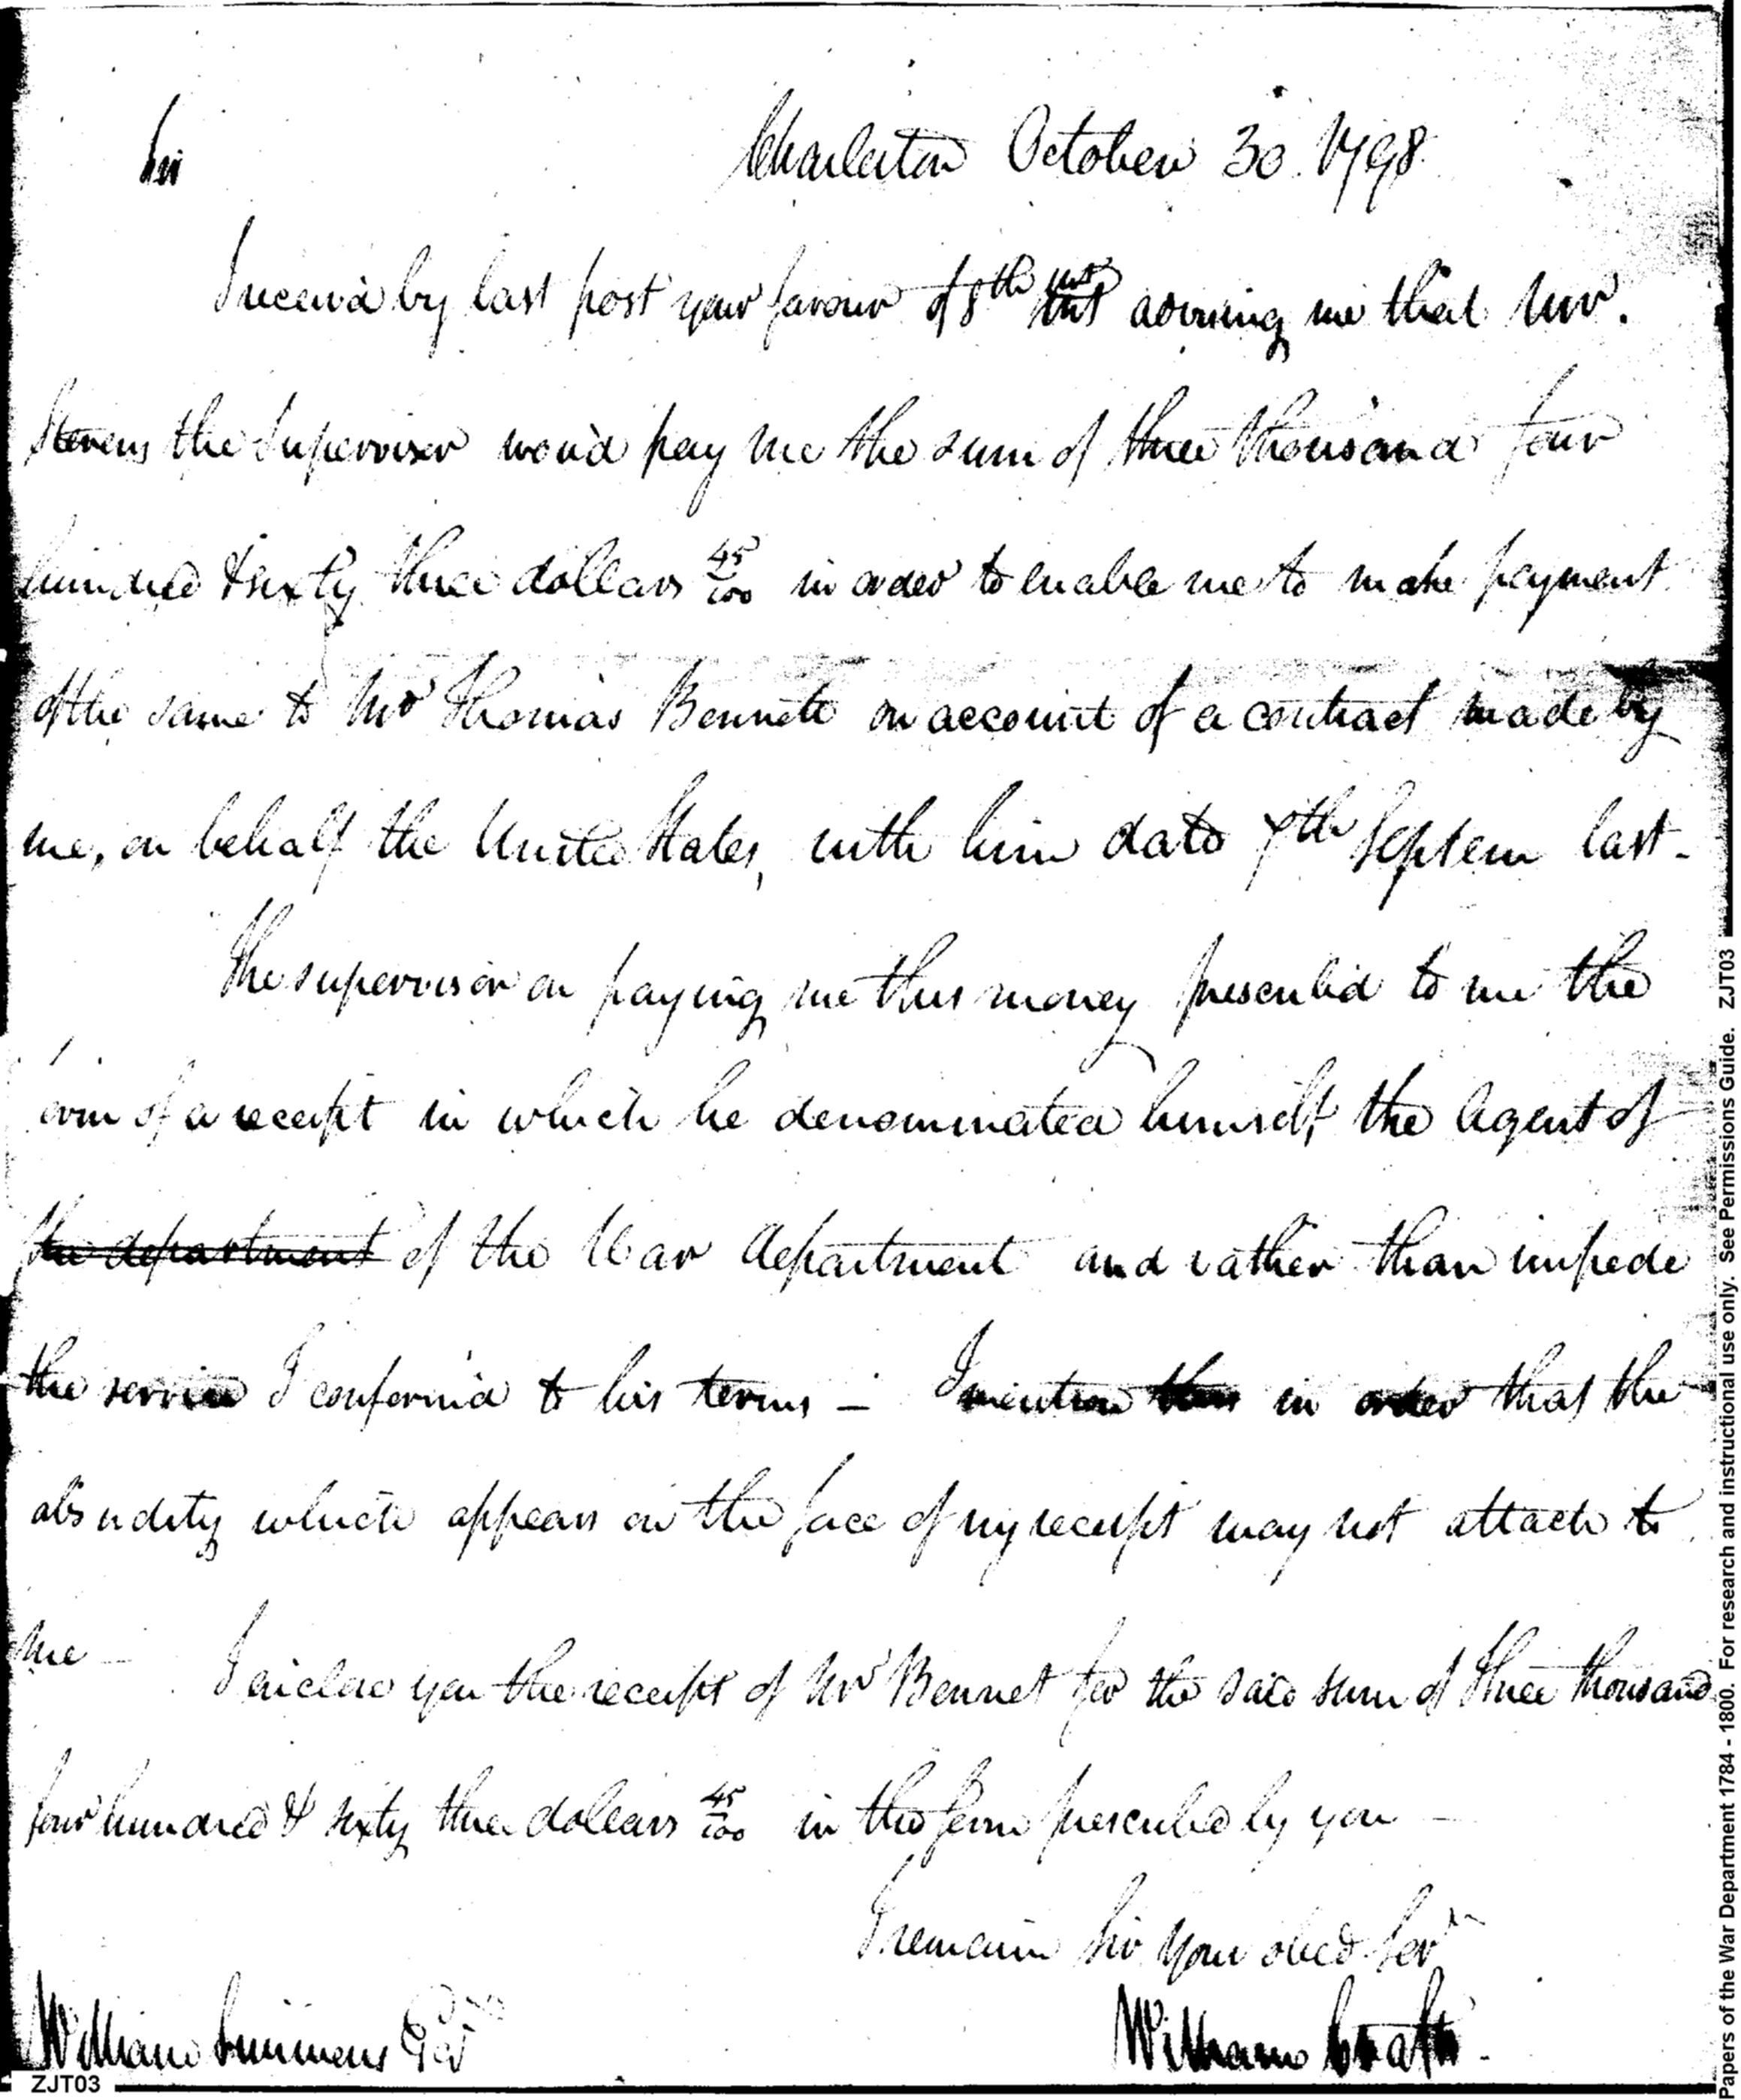 Sir
Charleston October 30. 1798.
I receiv'd by last post your favour of 8th inst advising me that Mr.
Stevens the Supervisor would pay me the sum of three thousand four
hundred & sixty three dollars 45/100 in order to enable me to make payment
of the same to Mr Thomas Bennett on account of a contract made by
me, on behalf the United States, with him date 7th Septem last -
The supervisor on paying me this money prescribed to me the
form of a receipt in which he denominated himself the Agent of
the department of the War department and rather than impede
the service I conform'd to his terms - I mention this in order that the
absudity which appears on the face of my receipt may not attach to
me - I inclose you the receipt of Mr Bennet for the said sum of three thousand
four hundred & sixty three dollars 45/100 in the form prescribed by you -
I remain Sir Your obed Servt
William Simmons Esqr
William Crafts.
ZJT03
Papers of the War Department 1784 - 1800. For research and instructional use only. See Permissions Guide. ZJT03